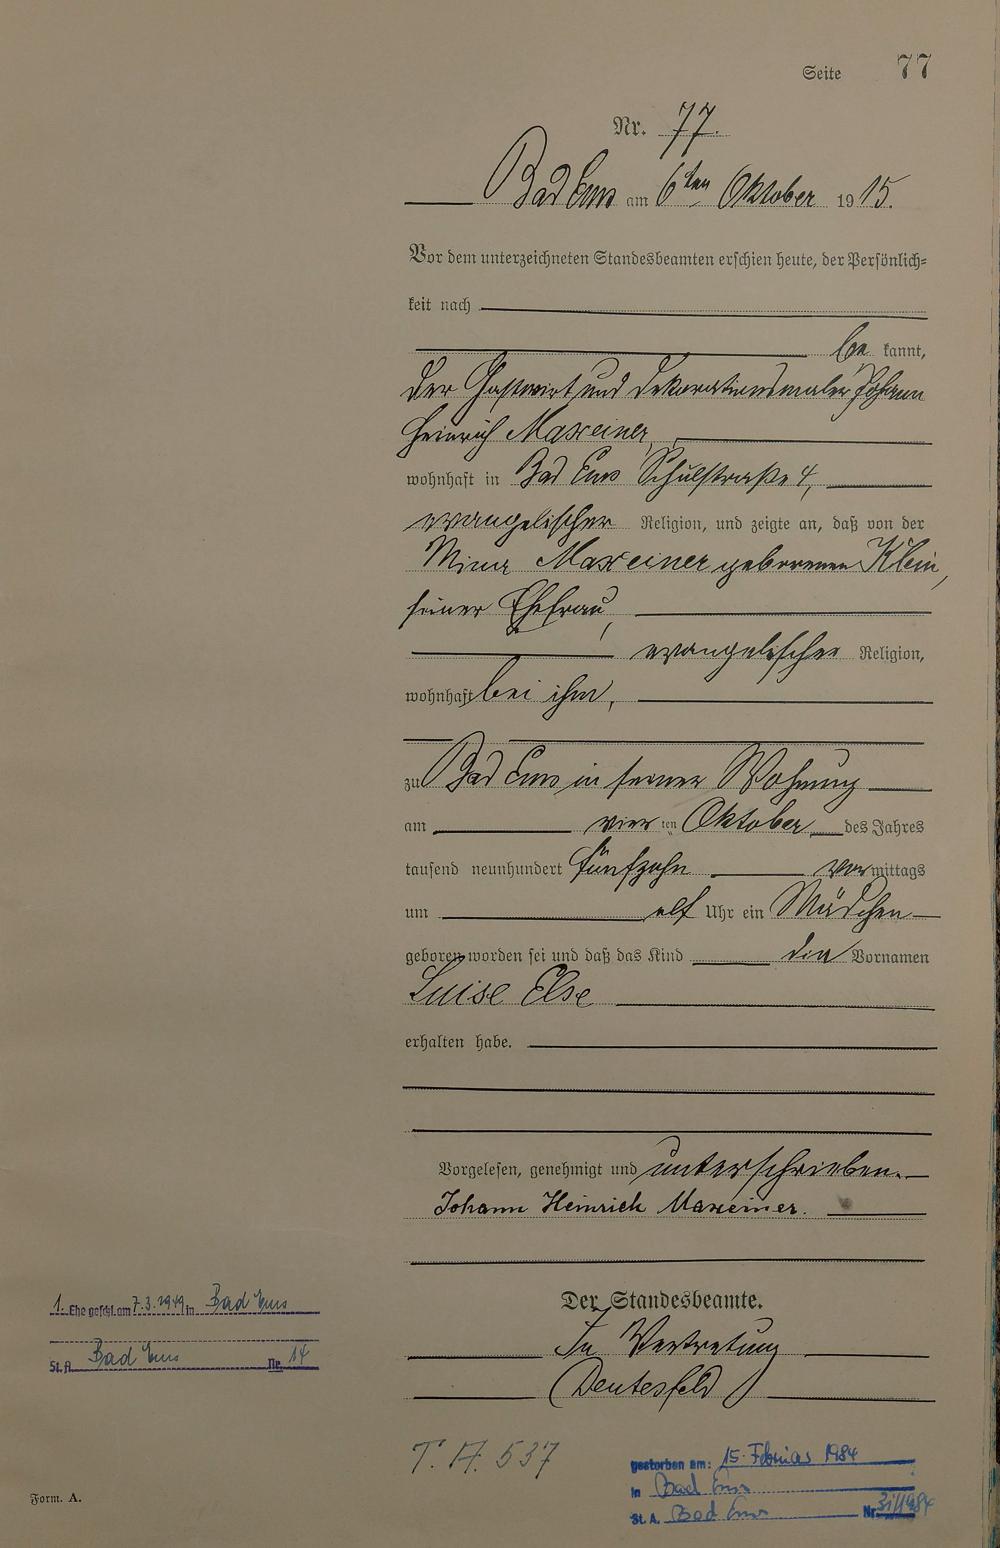 Seite 77
Nr. 77.
Bad Ems am 6ten Oktober 1915.
Vor dem unterzeichneten Standesbeamten erschien heute, der Persönlich=
keit nach
be kannt,
der Gastwirt und Dekorationsmaler Johann
Heinrich Maxeiner,
wohnhaft in Bad Ems Schulstraße 4,
evangelischer Religion, und zeigte an, daß von der
Mina Maxeiner geborenen Klein,
seiner Ehefrau,
evangelischer Religion,
wohnhaft bei ihm,
zu Bad Ems in seiner Wohnung
am vier ten Oktober des Jahres
tausend neunhundert fünfzehn vormittags
um elf Uhr ein Mädchen
geboren worden sei und daß das Kind die Vornamen
Luise Else
erhalten habe.
Vorgelesen, genehmigt und unterschrieben.
Johann Heinrich Maxeiner.
Der Standesbeamte.
In Vertretung
Deutesfeld
1. Ehe geschl. am 7.3.1949 in Bad Ems
St. A. Bad Ems Nr. 14
T. A. 537
gestorben am: 15. Februar 1984
in Bad Ems
St. A. Bad Ems Nr.
Form. A.